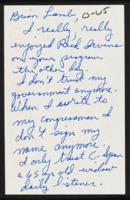 Brian Lamb, 0-45
I really, really
enjoyed Reed Irvine
on your program
the other day.
I don't trust my
government anymore.
When I write to
my Congressman I
don't sign my
name anymore.
I only trust C-Span
a 65 year old widow
daily listener.